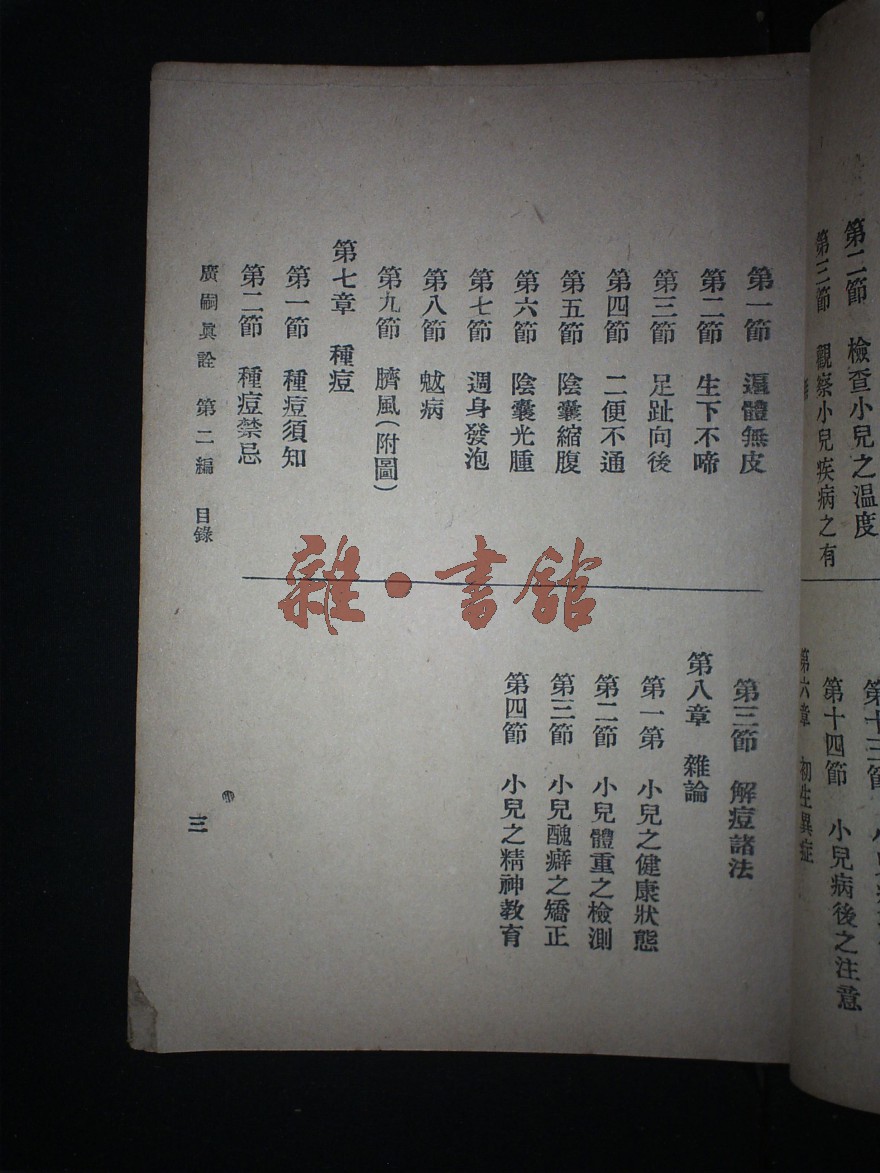 第二節 檢查小兒之温度
第三節 觀察小兒疾病之有
第十四節 小兒病後之注意
第六章 初生異症
第一節 遍體無皮
第二節 生下不啼
第三節 足趾向後
第四節 二便不通
第五節 陰囊縮腹
第六節 陰囊光腫
第七節 週身發泡
第八節 魃病
第九節 臍風(附圖)
第七章 種痘
第一節 種痘須知
第二節 種痘禁忌
第三節 解痘諸法
第八章 雜論
第一第 小兒之健康狀態
第二節 小兒體重之檢測
第三節 小兒醜癖之矯正
第四節 小兒之精神教育
廣嗣眞詮 第二編 目錄
三
雜·書館